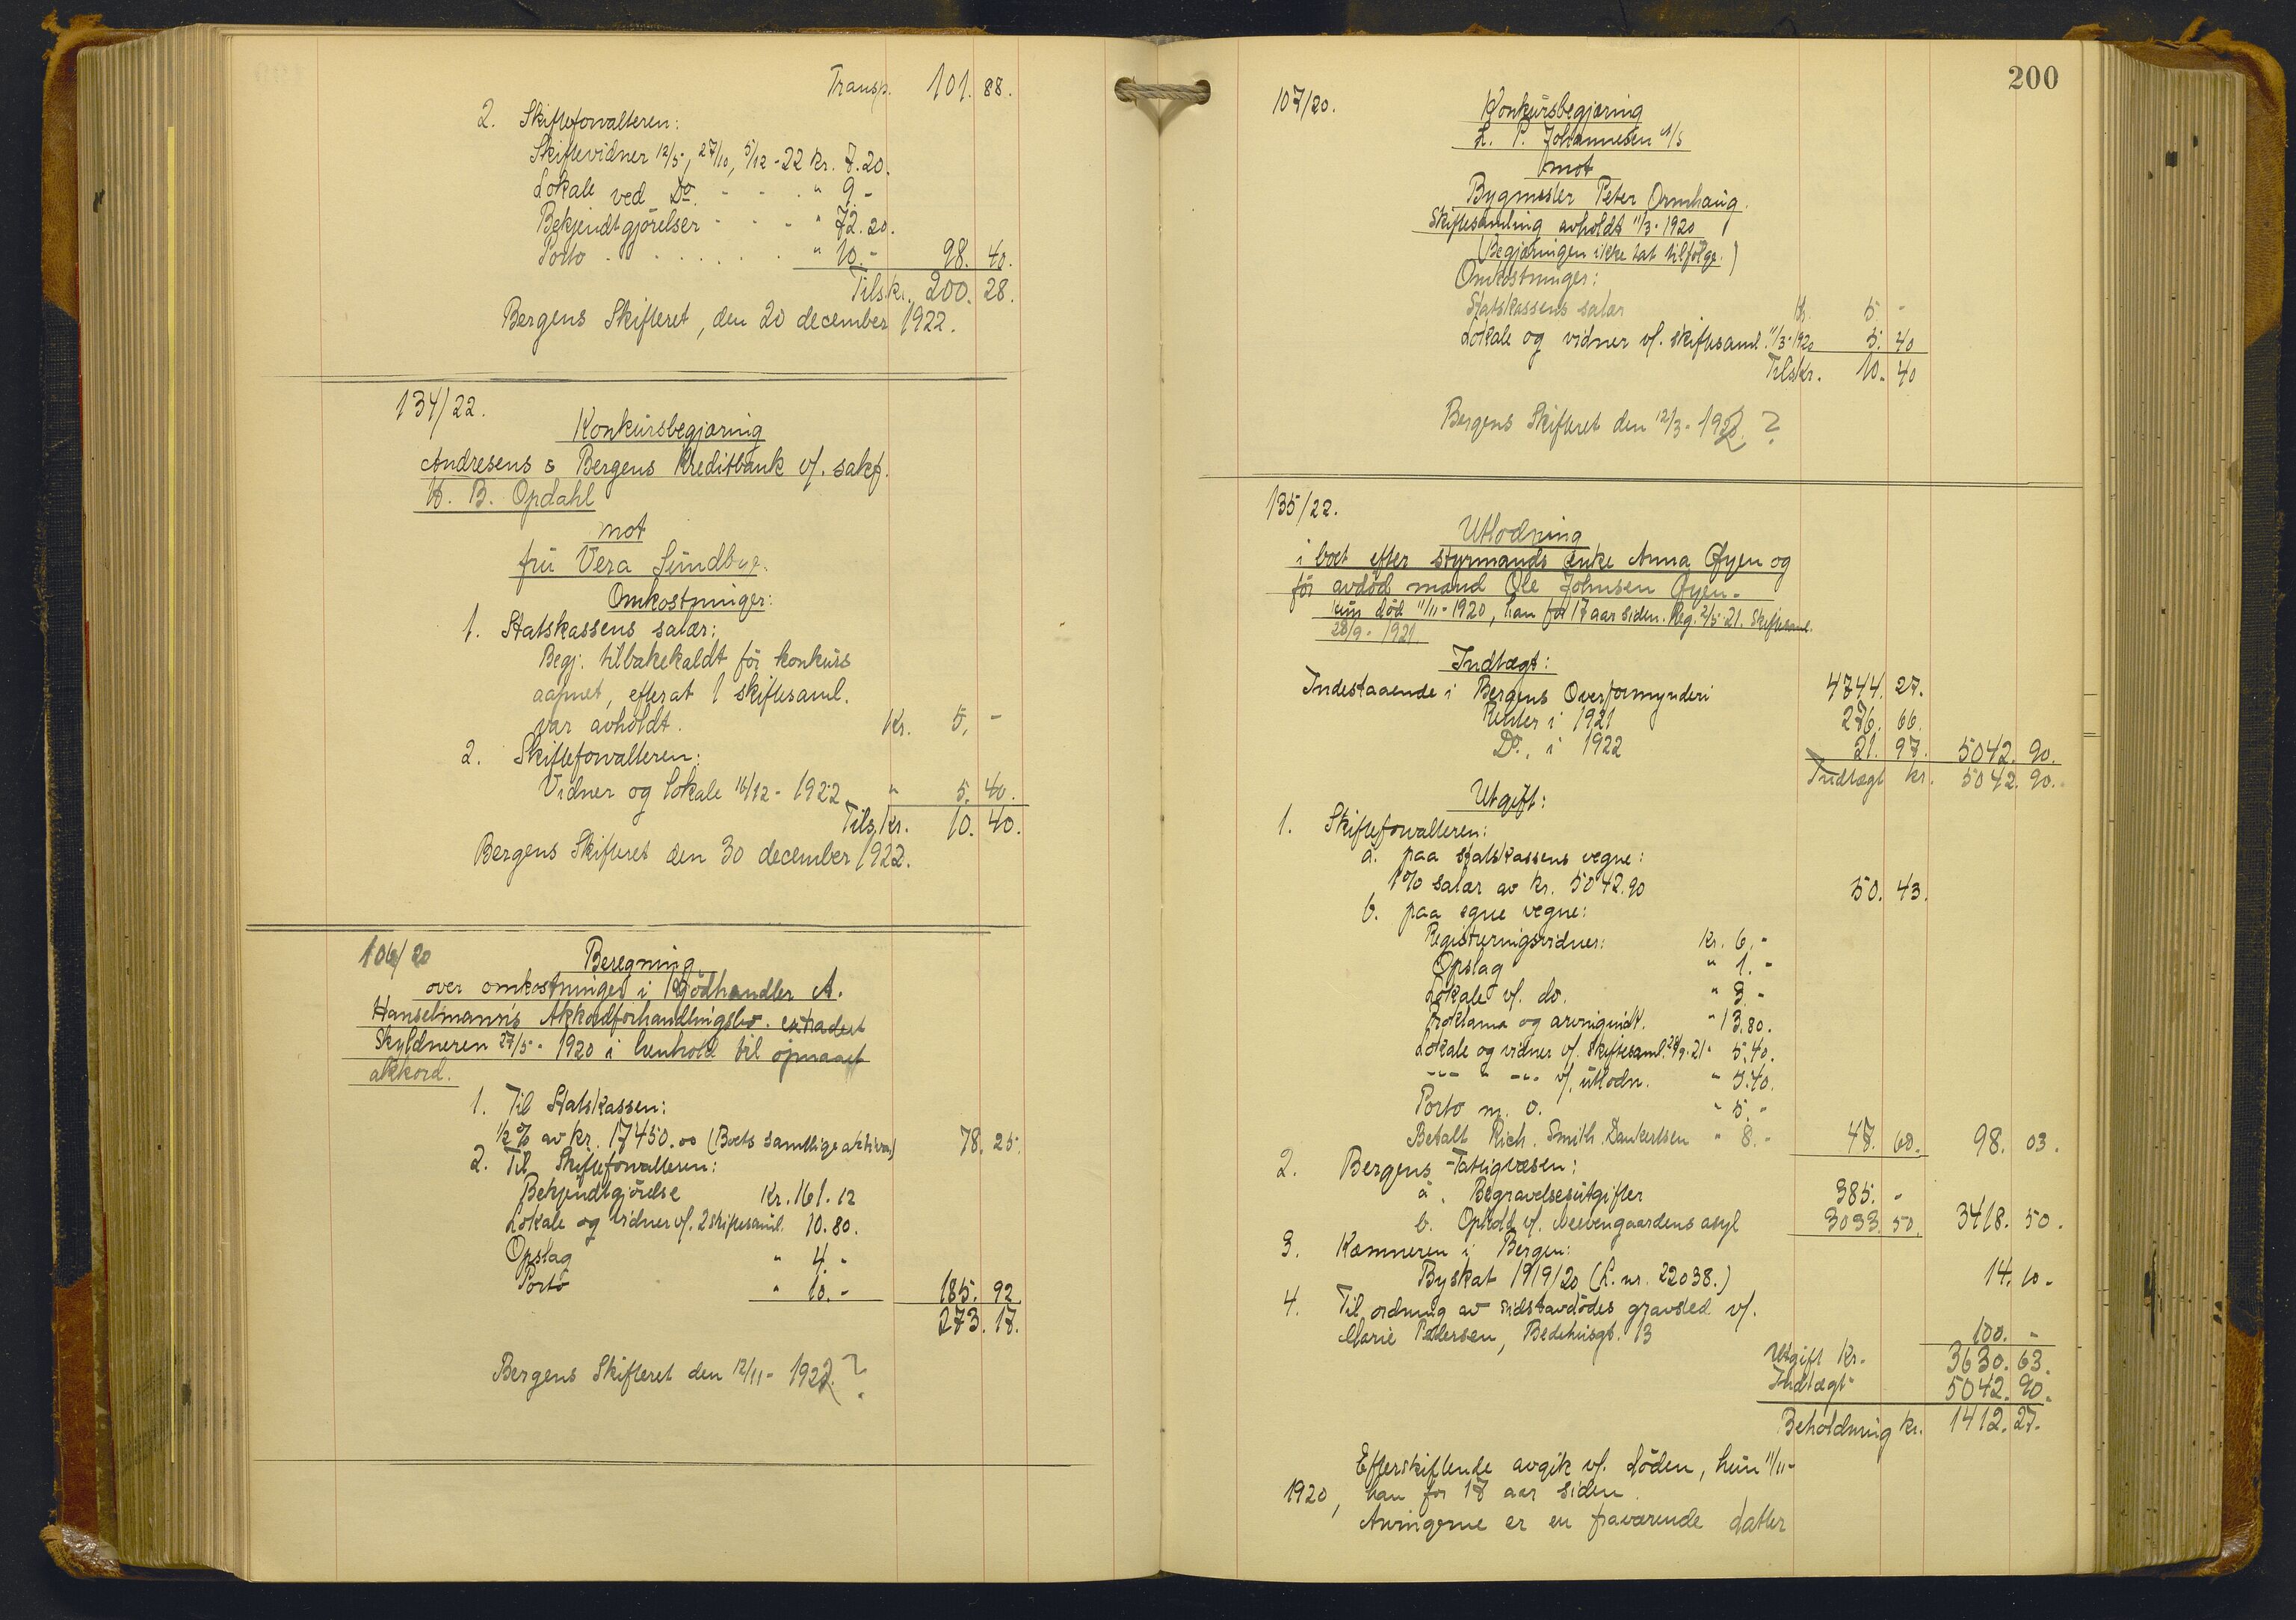 Transp. 101. 88.
2. Skifteforvalteren:
Skiftevidner 12/5, 27/10, 5/12 - 22 kr. 7.20.
Lokale ved Do. - - . " 9.-
Bekjendtgjörelser - - - " 72.20.
Porto . . . . . . . " 10.- 98. 40.
Tils. kr. 200. 28.
Bergens Skifteret, den 20 december 1922.
134/22.
Konkursbegjæring
Andresens & Bergens Kreditbank v/. sakf.
H. B. Opdahl
mot
fru Vera Sundbye.
Omkostninger:
1. Statskassens salær:
Begj. tilbakekaldt før konkurs
aapnet, efterat 1 skiftesaml.
var avholdt. Kr. 5. -
2. Skifteforvalteren:
Vidner og lokale 16/12 - 1922 " 5. 40.
Tils. Kr. 10. 40.
Bergens Skifteret den 30 december 1922.
106/20
Beregning
over omkostninger i Kjödhandler A.
Hanselmann's Akkordforhandlingsbo. extradert
Skyldneren 27/5 - 1920 i henhold til opnaaet
akkord.
1. Til Statskassen:
1/2 % av kr. 17450.00 (Boets samtlige aktiva) 78. 25.
2. Til Skifteforvalteren:
Bekjendtgjörelse Kr. 161. 12
Lokale og vidner v/. 2 skiftesaml. 10. 80.
Opslag " 4. -
Porto " 10. - 185. 92
273. 17.
Bergens Skifteret den 12/11 - 1922. ?
200
107/20.
Konkursbegjæring
L. P. Johannesen A/S
mot
Bygmester Peter Ormhaug.
Skiftesamling avholdt 11/3 - 1920
(Begjæringen ikke tat tilfölge.)
Omkostninger:
Statskassens salær Kr. 5. -
Lokale og vidner v/. skiftesaml. 11/3 - 1920 5. 40
Tils. kr. 10. 40
Bergens Skifteret den 12/3 - 1922. ?
135/22.
Utlodning
i boet efter styrmands enke Anna Øyen og
før avdöd mand Ole Johnsen Øyen.
hun död 11/11 - 1920, han for 17 aar siden. Reg. 2/5-21. Skiftesaml.
28/9 - 1921.
Indtægt:
Indestaaende i Bergens Overformynderi 4744. 27.
Renter i 1921 276. 66.
Do. i 1922 21. 97. 5042. 90.
Indtægt kr. 5042. 90.
Utgift:
1. Skifteforvalteren:
a. paa statskassens vegne:
1% salær av kr. 5042.90 50. 43.
b. paa egne vegne:
Registreringsvidner: Kr. 6. -
Opslag " 1. -
Lokale v/. do. " 3. -
Proklama og arvingindk. " 13.80.
Lokale og vidner v/. skiftesaml. 28/9-21 " 5.40.
-"- " -"- v/. utlodn. " 5.40.
Porto m. o. " 5. -
Betalt Rich. Smith Dankertsen " 8. - 47. 60. 98. 03.
2. Bergens Fattigvæsen:
a. Begravelsesutgifter 385. -
b. Ophold v/. Neevengaardens asyl 3033. 50. 3418. 50.
3. Kæmneren i Bergen:
Byskat 1919/20 (L. nr. 22038.) 14. 10.
4. Til ordning av sidstavdödes gravsted v/.
Marie Pedersen, Bedehusgt. 13 100. -
Utgift Kr. 3630. 63.
Indtægt " 5042. 90.
Beholdning kr. 1412. 27.
Efterskiftende avgik v/. döden, hun 11/11 -
1920, han for 17 aar siden.
Arvingerne er en fraværende datter